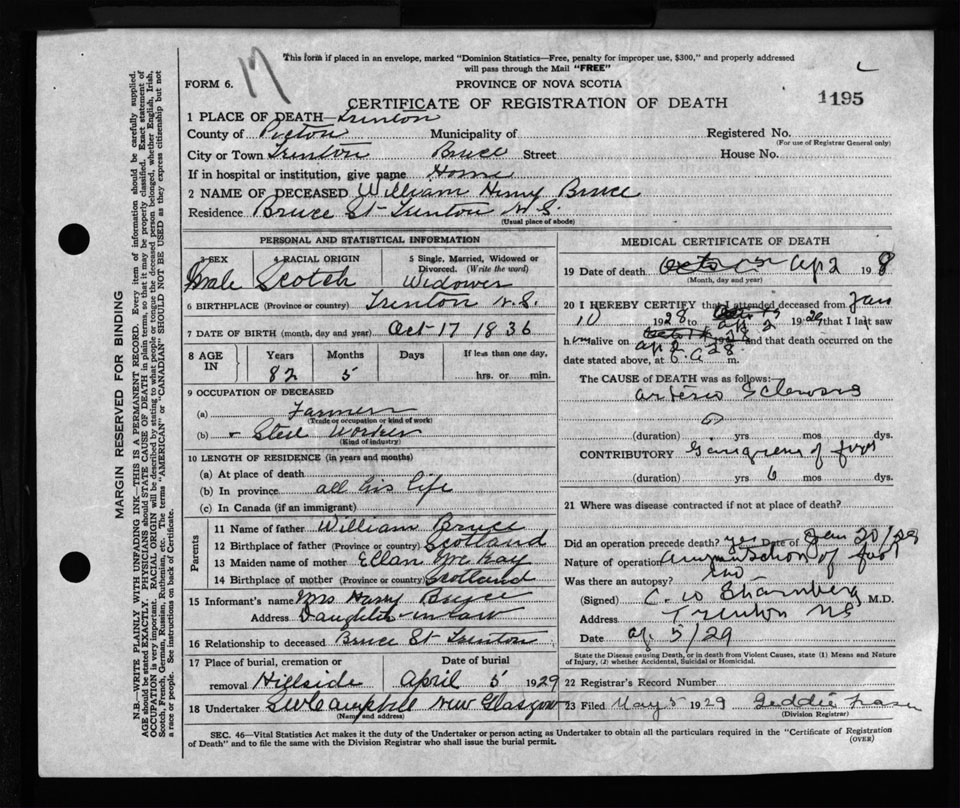 This form if placed in an envelope, marked "Dominion Statistics—Free, penalty for improper use, $300," and properly addressed
will pass through the Mail "FREE"
17
FORM 6.
PROVINCE OF NOVA SCOTIA
CERTIFICATE OF REGISTRATION OF DEATH
1195
1 PLACE OF DEATH—Trenton
County of Pictou Municipality of Registered No.
(For use of Registrar General only)
City or Town Trenton Bruce Street House No.
If in hospital or institution, give name Home
2 NAME OF DECEASED William Henry Bruce
Residence Bruce St Trenton N.S.
(Usual place of abode)
PERSONAL AND STATISTICAL INFORMATION
3 SEX
Male
4 RACIAL ORIGIN
Scotch
5 Single, Married, Widowed or
Divorced. (Write the word)
Widower
6 BIRTHPLACE (Province or country) Trenton N.S.
7 DATE OF BIRTH (month, day and year) Oct 17 1836
8 AGE
IN
Years
82
Months
5
Days
If less than one day
hrs. or min.
9 OCCUPATION OF DECEASED
(a) Farmer
(Trade or occupation or kind of work)
(b) Steel Worker
(Kind of industry)
10 LENGTH OF RESIDENCE (in years and months)
(a) At place of death
(b) In province all his life
(c) In Canada (if an immigrant)
Parents
11 Name of father William Bruce
12 Birthplace of father (Province or country) Scotland
13 Maiden name of mother Ellen McKay
14 Birthplace of mother (Province or country) Scotland
15 Informant's name Mrs Harry Bruce
Address Daughter in law
16 Relationship to deceased Bruce St Trenton
17 Place of burial, cremation or
removal Hillside
Date of burial
April 5 1929
18 Undertaker Campbell New Glasgow
(Name and address)
MEDICAL CERTIFICATE OF DEATH
19 Date of death Ap 2 19 8
(Month, day and year)
20 I HEREBY CERTIFY that I attended deceased from Jan
10 1928 ap 2 1929 that I last saw
him alive on ap 2 and that death occurred on the
date stated above, at 6 a m.
The CAUSE OF DEATH was as follows:
Arterio Sclerosis
(duration) yrs mos dys.
CONTRIBUTORY Gangrene of foot
(duration) yrs 6 mos dys.
21 Where was disease contracted if not at place of death?
Did an operation precede death? yes Date of Jan 20/29
Nature of operation Amputation of foot
Was there an autopsy? no
(Signed) C. W Stramberg M.D.
Address Trenton NS
Date ap 5/29
State the Disease causing Death, or in death from Violent Causes, state (1) Means and Nature
of Injury, (2) whether Accidental, Suicidal or Homicidal.
22 Registrar's Record Number
23 Filed May 5 1929 Geddie Fraser
(Division Registrar)
SEC. 46—Vital Statistics Act makes it the duty of the Undertaker or person acting as Undertaker to obtain all the particulars required in the "Certificate of Registration
of Death" and to file the same with the Division Registrar who shall issue the burial permit.
(OVER)
MARGIN RESERVED FOR BINDING
N.B.—WRITE PLAINLY WITH UNFADING INK—THIS IS A PERMANENT RECORD. Every item of information should be carefully supplied.
AGE should be stated EXACTLY. PHYSICIANS should STATE CAUSE OF DEATH in plain terms, so that it may be properly classified. Exact statement of
OCCUPATION is very important. RACIAL ORIGIN will be described by stating to what people or tongue the deceased person belonged, whether English, Irish,
Scotch, French, German, Russian, Ruthenian, etc. The terms "AMERICAN" or "CANADIAN" SHOULD NOT BE USED as they express citizenship but not
a race or people. See instructions on back of Certificate.